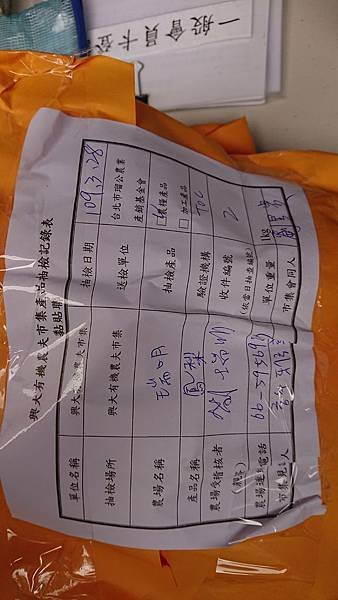 一般會員卡
興大有機農夫市集產品抽檢記錄表
黏貼單
單位名稱 興大有機農夫市集 抽檢日期 109.3.28
抽檢場所 興大有機農夫市集 送檢單位 台北市瑠公農業產銷基金會
農場名稱 瑞明 抽檢產品 農糧產品 □加工產品
產品名稱 鳳梨 驗證機構 TOC
農場受稽核者(親子) 收件編號(依當日抽查編號) 2
農場連絡電話 單位重量 1kg
市集見人 市集會同人